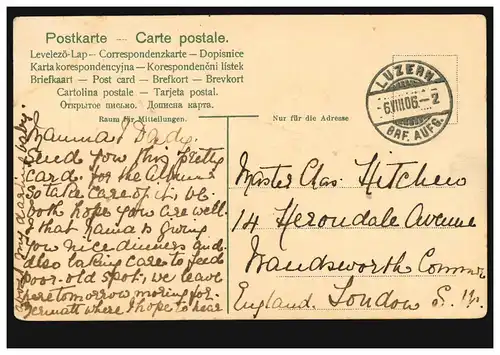 Postkarte – Carte postale.
Levelező-Lap – Correspondenzkarte – Dopisnice
Karta korespondencyjna – Korespondenční lístek
Briefkaart – Post card – Brefkort – Brevkort
Cartolina postale – Tarjeta postal.
Открытое письмо. Дописна карта.
Raum für Mitteilungen.
Nur für die Adresse
LUZERN
6VIII06–2
BRF. AUFG.
Mamma & Dady.
Send you this pretty
card. for the Album
so take care of it, we
both hope you are well.
& that Nana is giving
you nice dinners and
also taking care to feed
poor old spot; we leave
here tomorrow moring for
Zermatt where I hope to hear
my darling baby.
Master Chas. Hitchen
14 Herondale Avenue
Wandsworth Common
England. London S. W.